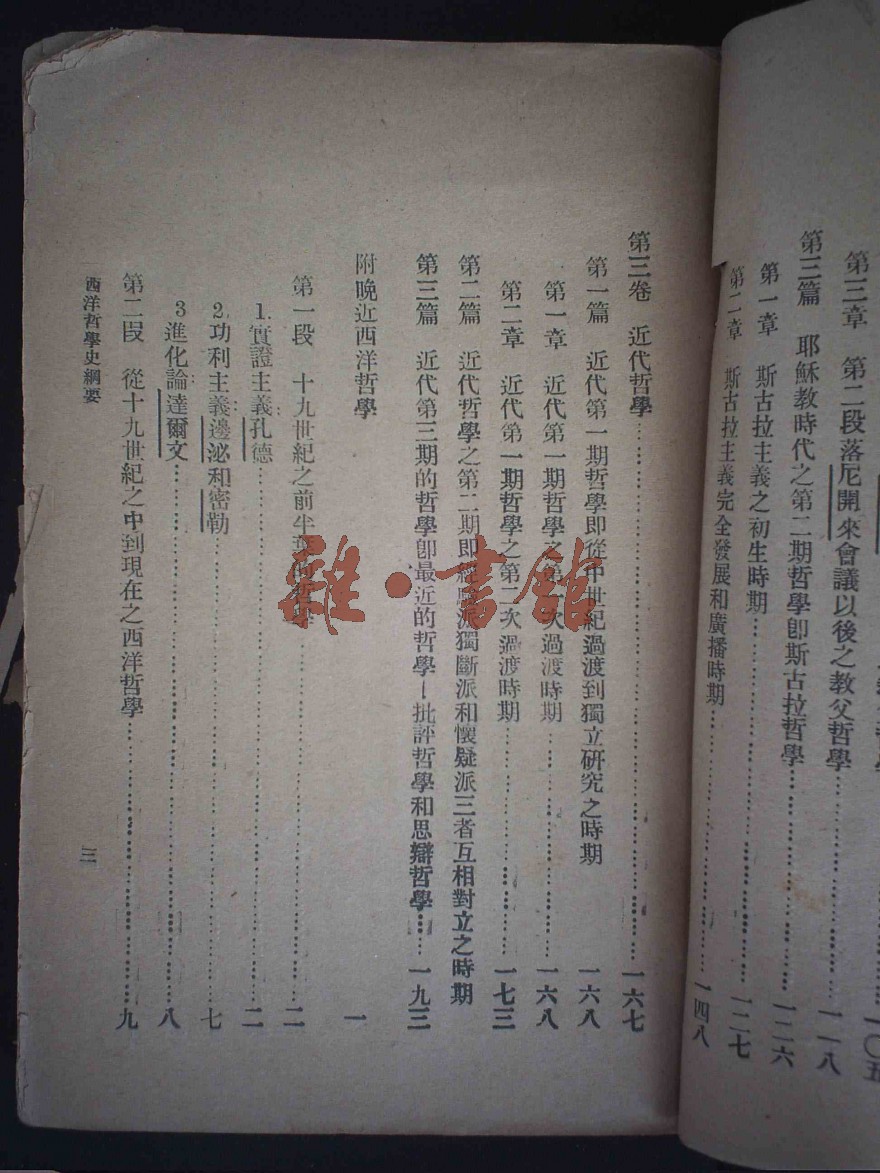 第三章　第二段落尼開來會議以後之教父哲學……一一八
第三篇　耶穌教時代之第二期哲學即斯古拉哲學……一二六
第一章　斯古拉主義之初生時期……一二七
第二章　斯古拉主義完全發展和廣播時期……一四八
第三卷　近代哲學……一六七
第一篇　近代第一期哲學即從中世紀過渡到獨立研究之時期　一六八
第一章　近代第一期哲學之第一次過渡時期……一六八
第二章　近代第一期哲學之第二次過渡時期……一七三
第二篇　近代哲學之第二期即經驗派獨斷派和懷疑派三者互相對立之時期
第三篇　近代第三期的哲學即最近的哲學—批評哲學和思辯哲學……一九三
附晚近西洋哲學　一
第一段　十九世紀之前半葉的哲學……二
1.實證主義孔德……二
2.功利主義邊泌和密勒……七
3進化論達爾文……八
第二段　從十九世紀之中到現在之西洋哲學……九
西洋哲學史綱要　三
雜·書館